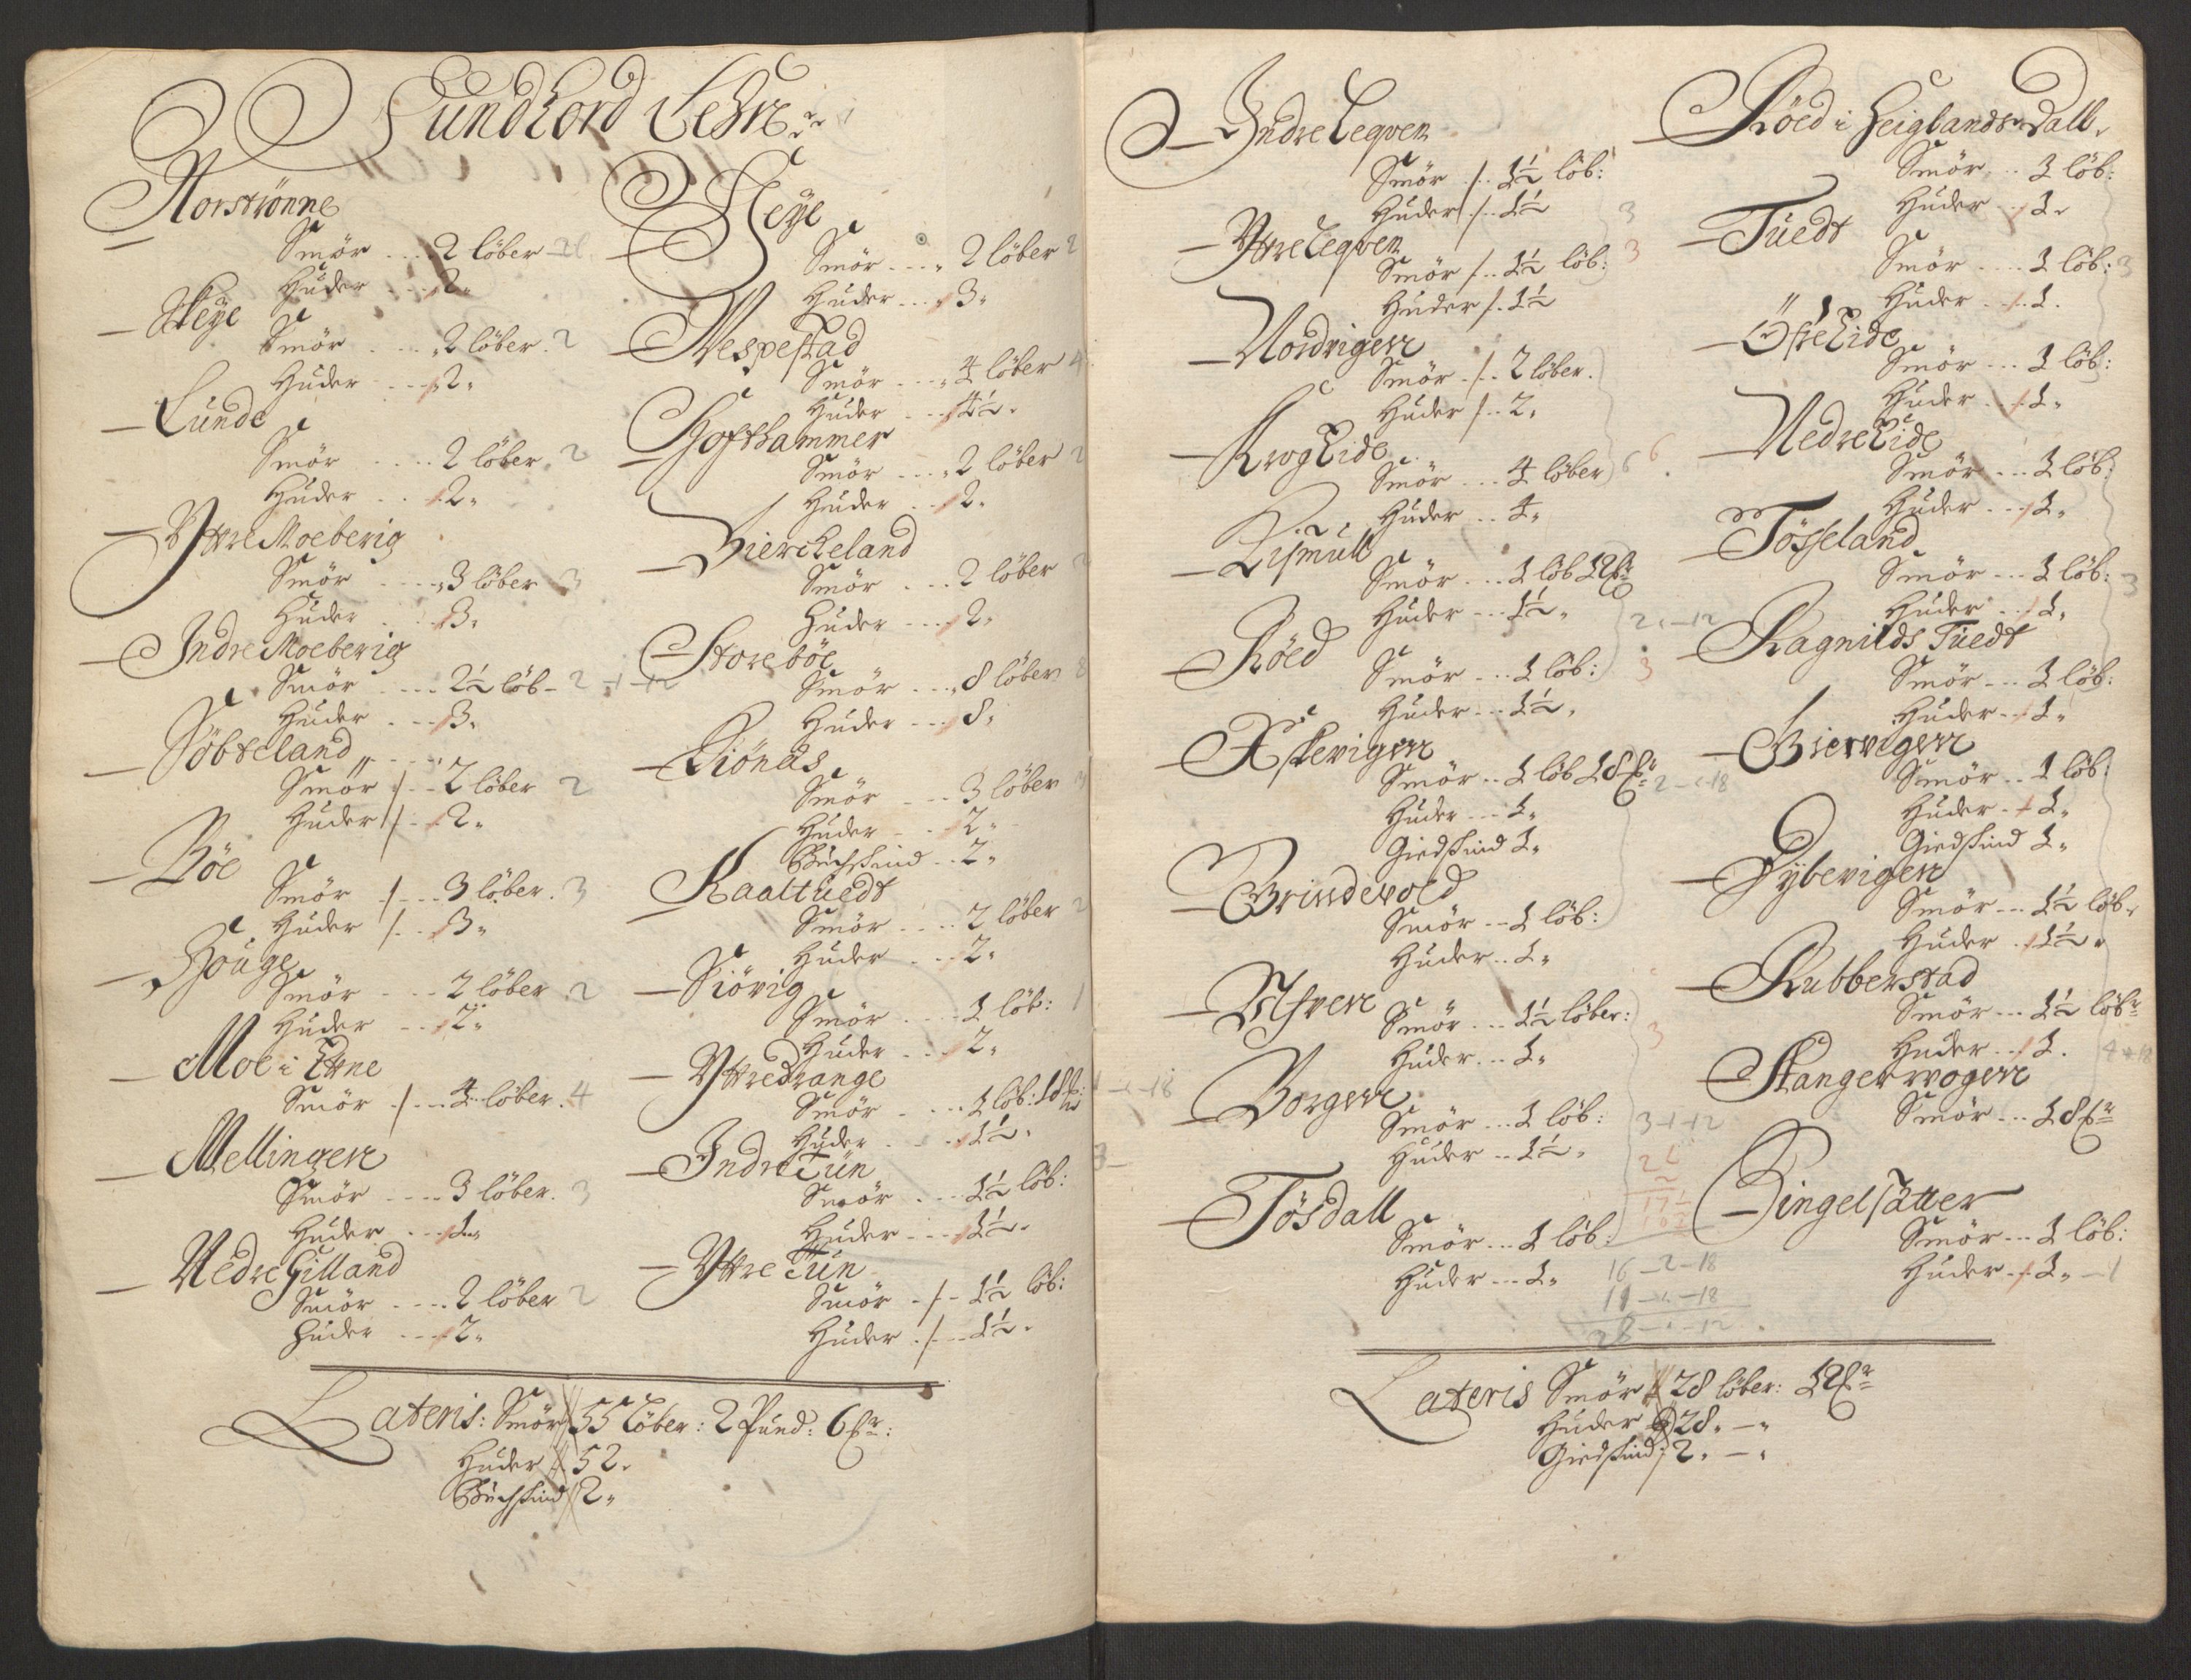 Sundhord Lehn
Norstrønne
Smör .... 2 löber
Huder .... 2
Steye
Smör .... 2 löber. 2
Huder .... 2
Lunde
Smör .... 2 löber. 2
Huder ... 2
Yttre Moeberig
Smör .... 3 löber 3
Huder ... 3
Indre Moeberig
Smör .... 2½ löb - 2 - 1 - 12
Huder ... 3
Söbteland
Smör ... 2 löber 2
Huder ... 2
Böe
Smör .... 3 löber. 3
Huder ... 3
Houge
Smör .... 2 löber. 2
Huder ... 2
Moe i Etne
Smör .... 4 löber. 4
Mellingen
Smör .... 3 löber. 3
Huder ... 1
Nedre Gilland
Smör .... 2 löber 2
Huder ... 2
Heye
Smör .... 2 löber 2
Huder ... 3
Wespestad
Smör .... 4 löber 4
Huder ... 4½
Hofthammer
Smör .... 2 löber 2
Huder ... 2
Biercheland
Smör .... 2 löber
Huder ... 2
Storeböe
Smör .... 8 löber 8
Huder ... 8
Siönås
Smör ... 3 löber 3
Huder ... 2
Buchskind .. 2
Kaaltuedt
Smör .... 2 löber 2
Huder ... 2
Siövig
Smör .... 1 löb: 1
Huder ... 2
Yttre Drange
Smör .... 1 löb: 18 1 - - 18
Huder .... 1½
Indre Tün
Smör .... 1½ löb: 3
Huder .... 1½
Yttre Tün
Smör ... 1½ löb:
Huder ... 1½
Lateris: Smör 55 Löber: 2 Pund: 6
Huder 52
Buchskind 2
Indre Leqven
Smör .. 1½ löb:
Huder .. 1½ 3
Yttre Leqven
Smör .. 1½ löb: 3
Huder .. 1½
Nordvigen
Smör .. 2 löber.
Huder .. 2
Krog Eide
Smör ... 4 löber 6 6
Huder .. 4
Lismul
Smör ... 1 löb 12
Huder ... 1½
2 - - 12
Röed
Smör ... 1 löb: 3
Huder ... 1½
Askevigen
Smör .. 1 löb 18 2 - - 18
Huder ... 1
Giedskind 1
Brindevold
Smör .. 1 löb:
Huder .. 1
Smör ... 1½ löber:
Huder ... 1 3
Borgen
Smör ... 1 löb: 3 - 1 - 12
Huder .. 1½
Tösdall
Smör ... 1 löb:
Huder ... 1
16 - 2 - 18
11 - - 18
28 - - 12
Röed i Heiglands Dall
Smör .. 1 löb:
Huder .. 1
Tüedt
Smör .... 1 löb: 3
Huder ... 1
Öfre Eide
Smör ... 1 löb:
Huder ... 1
Nedre Eide
Smör ... 1 löb:
Huder ... 1
Tösseland
Smör ... 1 löb: 3
Huder ... 1
Ragnilds Tuedt
Smör ... 1 löb:
Huder .. 1
Biervigen
Smör .. 1 löb:
Huder .. 1
Giedskind 1
Dybevigen
Smör ... 1½ löb
Huder .. 1½
Rubberstad
Smör ... 1½ löb
Huder ... 1. 4 - 18
Stangervogen
Smör ... 18
Singelsätter
Smör ... 1 löb:
Huder .. 1 - 1
Lateris Smör 28 löber: 12
Huder 28
Giedskind 2